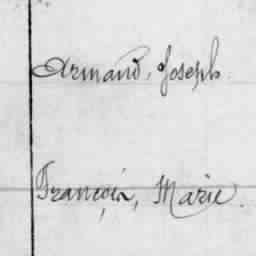 Armand, Joseph.
François, Marie.